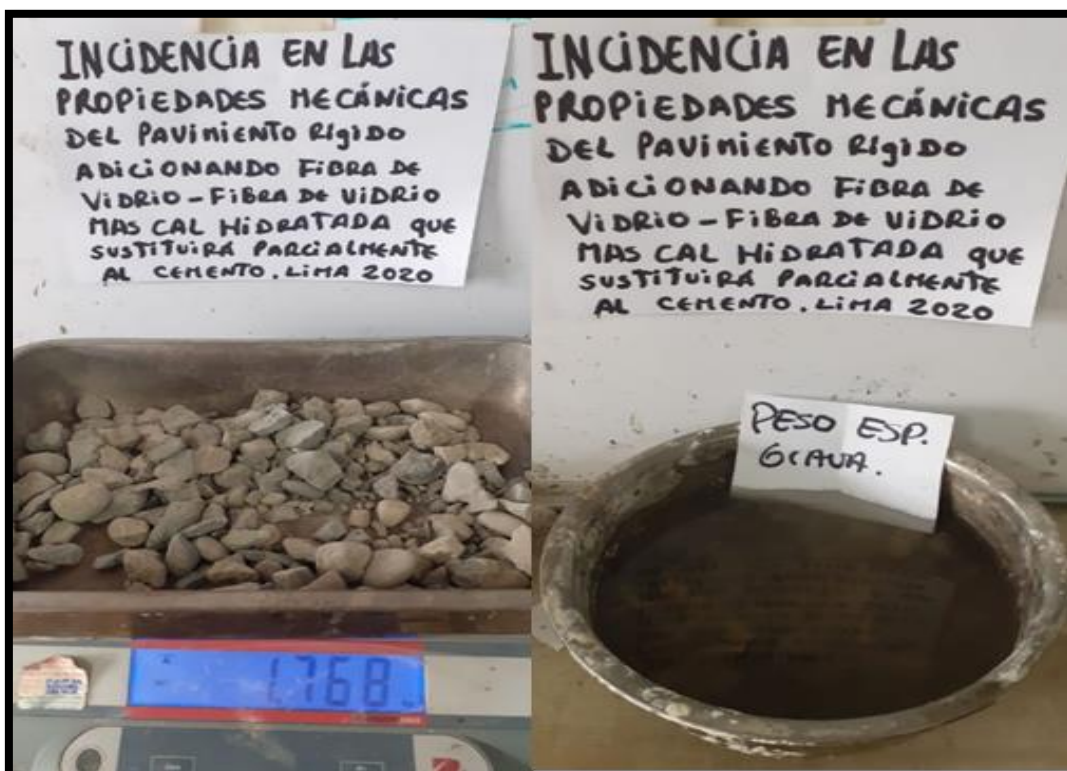 INCIDENCIA EN LAS
PROPIEDADES MECÁNICAS
DEL PAVIMIENTO RÍGIDO
ADICIONANDO FIBRA DE
VIDRIO - FIBRA DE VIDRIO
MAS CAL HIDRATADA QUE
SUSTITUIRÁ PARCIALMENTE
AL CEMENTO. LIMA 2020
1.768
INCIDENCIA EN LAS
PROPIEDADES MECÁNICAS
DEL PAVIMIENTO RÍGIDO
ADICIONANDO FIBRA DE
VIDRIO - FIBRA DE VIDRIO
MAS CAL HIDRATADA QUE
SUSTITUIRÁ PARCIALMENTE
AL CEMENTO. LIMA 2020
PESO ESP.
GRAVA.